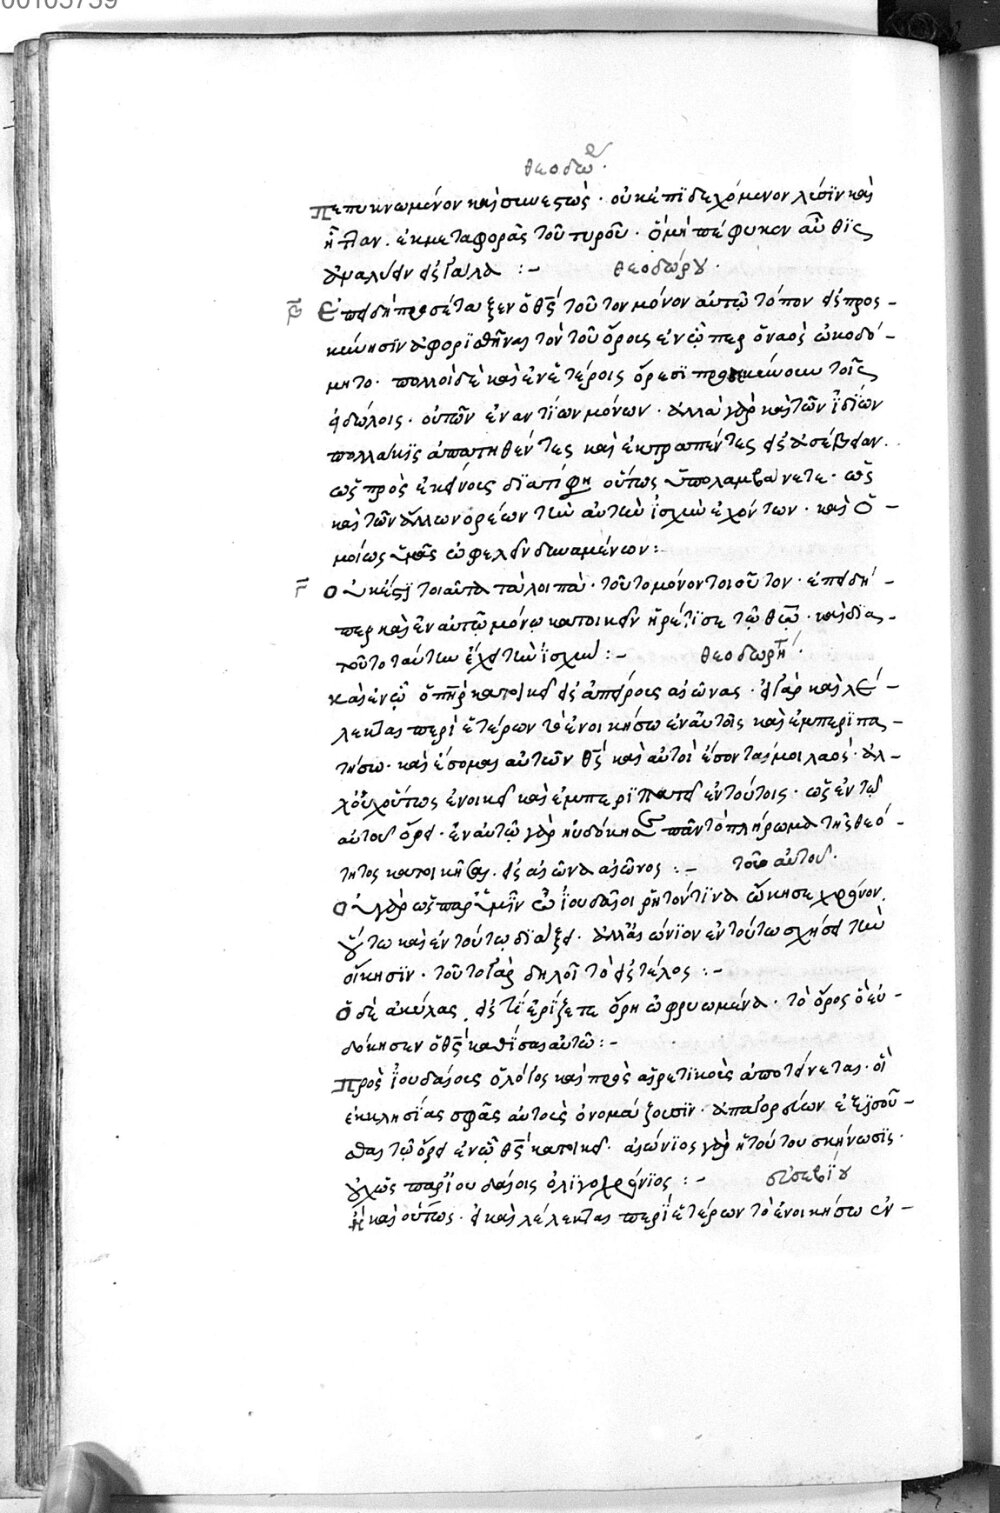 00105759
θεοδώρ
πεπυκνωμένον καὶ συνεστὼς · οὐκ ἐπιδεχόμενον λύσϊν καὶ
ἐκ μεταφορᾶς τοῦ τυροῦ · ὃ μὴ πέφυκεν αὖθϊς
εἰς γάλα :- θεοδώρου ·
β Ἐπειδὴ προσέταξεν ὁ θς τοῦτον μόνον αὐτῷ τόπον εἰς προσ-
κύνησϊν ἀφορϊσθῆναι τὸν τοῦ ὄρους ἐν ᾧπερ ὁ ναὸς ὠκοδό-
μητο · πολλοὶ δὲ καὶ ἐν ἑτέροις ὄρεσϊ προσκύνουν τοῖς
εἰδώλοις · οὐ τῶν ἐναντΐων μόνων · ἀλλὰ γὰρ καὶ τῶν ἰδΐων
πολλακϊς ἀπατηθέντες καὶ ἐκτραπέντες εἰς ἀσέβειαν ·
ὡς πρὸς ἐκείνους οὕτως ὑπολαμβάνετε · ὡς
καὶ τῶν ἄλλων ὀρέων τὴν αὐτὴν ἰσχὺν ἐχόντων · καὶ ὁ-
μοίως ὑμᾶς ὠφελεῖν δυναμένων :
γ Οὐκ ἔστϊ τοιαῦτα τὰ λοιπὰ · τοῦτο μόνον τοιοῦτον · ἐπειδή-
περ καὶ ἐν αὐτῷ μόνῳ κατοικεῖν ᾑρέτϊσε τῷ θῷ · καὶ δϊα-
τοῦτο ταύτην ἔχει τὴν ἰσχύν :- θεοδωρήτ ·
καὶ ἐν ᾧ ὁ πηρ κατοικεῖ εἰς ἀπείρους αἰῶνας · εἰ γὰρ καὶ λέ-
λεκται περὶ ἑτέρων τὸ ἐνοικήσω ἐν αὐτοῖς καὶ ἐμπερϊπα-
τήσω · καὶ ἔσομαι αὐτῶν θς καὶ αὐτοὶ ἔσονταί μοι λαός · ἀλ-
λ' οὐχ οὕτως ἐνοικεῖ καὶ ἐμπερϊπατεῖ ἐν τούτοις · ὡς ἐν τῷ
αὐτοῦ ὄρει · ἐν αὐτῷ γὰρ ηὐδόκησε πᾶν τὸ πλήρωμα τῆς θεό-
τητος κατοικῆσαι · εἰς αἰῶνα αἰῶνος :- τοῦ αὐτοῦ ·
Οὐ γὰρ ὥσπερ ὑμῖν ὦ ἰουδαῖοι ῥητόν τϊνα ᾤκησε χρόνον
οὕτω καὶ ἐν τούτῳ δϊάξει · ἀλλ' αἰώνϊον ἐν τούτω σχήσει τὴν
οἴκησϊν · τοῦτο γὰρ δηλοῖ τὸ εἰς τέλος :-
Ὁ δὲ ἀκύλας · εἰς τί ἐρίζετε ὄρη ὠφρυωμένα · τὸ ὄρος ὃ εὐ-
δόκησεν ὁ θς καθΐσαι αὐτῶ :-
Πρὸς ἰουδαίους ὁ λόγος καὶ πρὸς αἱρετϊκοὺς ἀποτείνεται · οἳ
ἐκκλησίας σφᾶς αὐτοὺς ὀνομάζουσϊν · ἀπαγορεύων ἐξϊσοῦ-
σθαι τῷ ὄρει ἐν ᾧ θς κατοικεῖ · αἰώνϊος γὰρ ἡ τούτου σκήνωσϊς ·
οὐχ ὡς παρ' ἰουδαίοις ὀλϊγοχρόνϊος :- εὐσεβΐου
Ἢ καὶ οὕτως · εἰ καὶ λέλεκται περὶ ἑτέρων τὸ ἐνοικήσω ἐν-